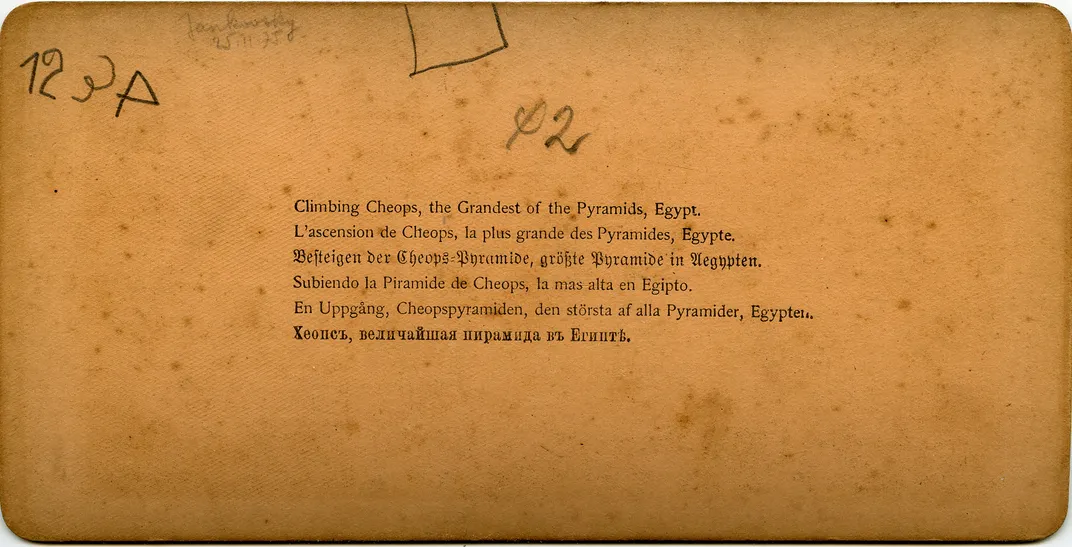 Jankovsky
25.11.75
12
42
Climbing Cheops, the Grandest of the Pyramids, Egypt.
L'ascension de Cheops, la plus grande des Pyramides, Egypte.
Besteigen der Cheops-Pyramide, größte Pyramide in Aegypten.
Subiendo la Piramide de Cheops, la mas alta en Egipto.
En Uppgång, Cheopspyramiden, den största af alla Pyramider, Egypten.
Хеопсъ, величайшая пирамида въ Египтѣ.